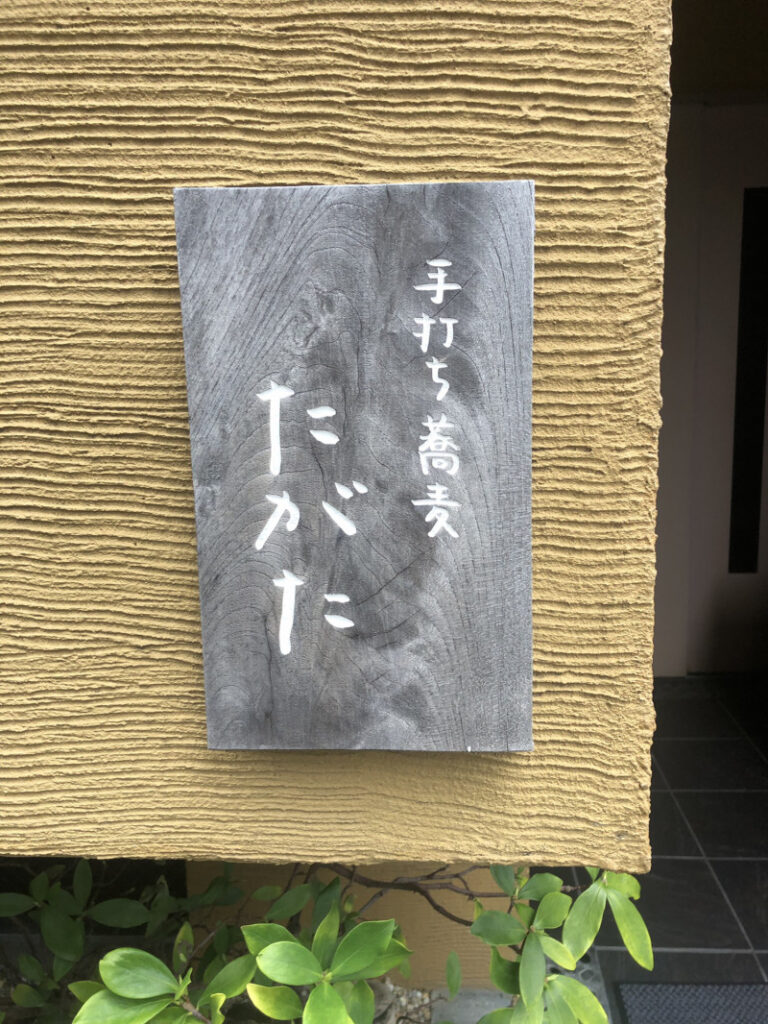 手打ち蕎麦
たがた